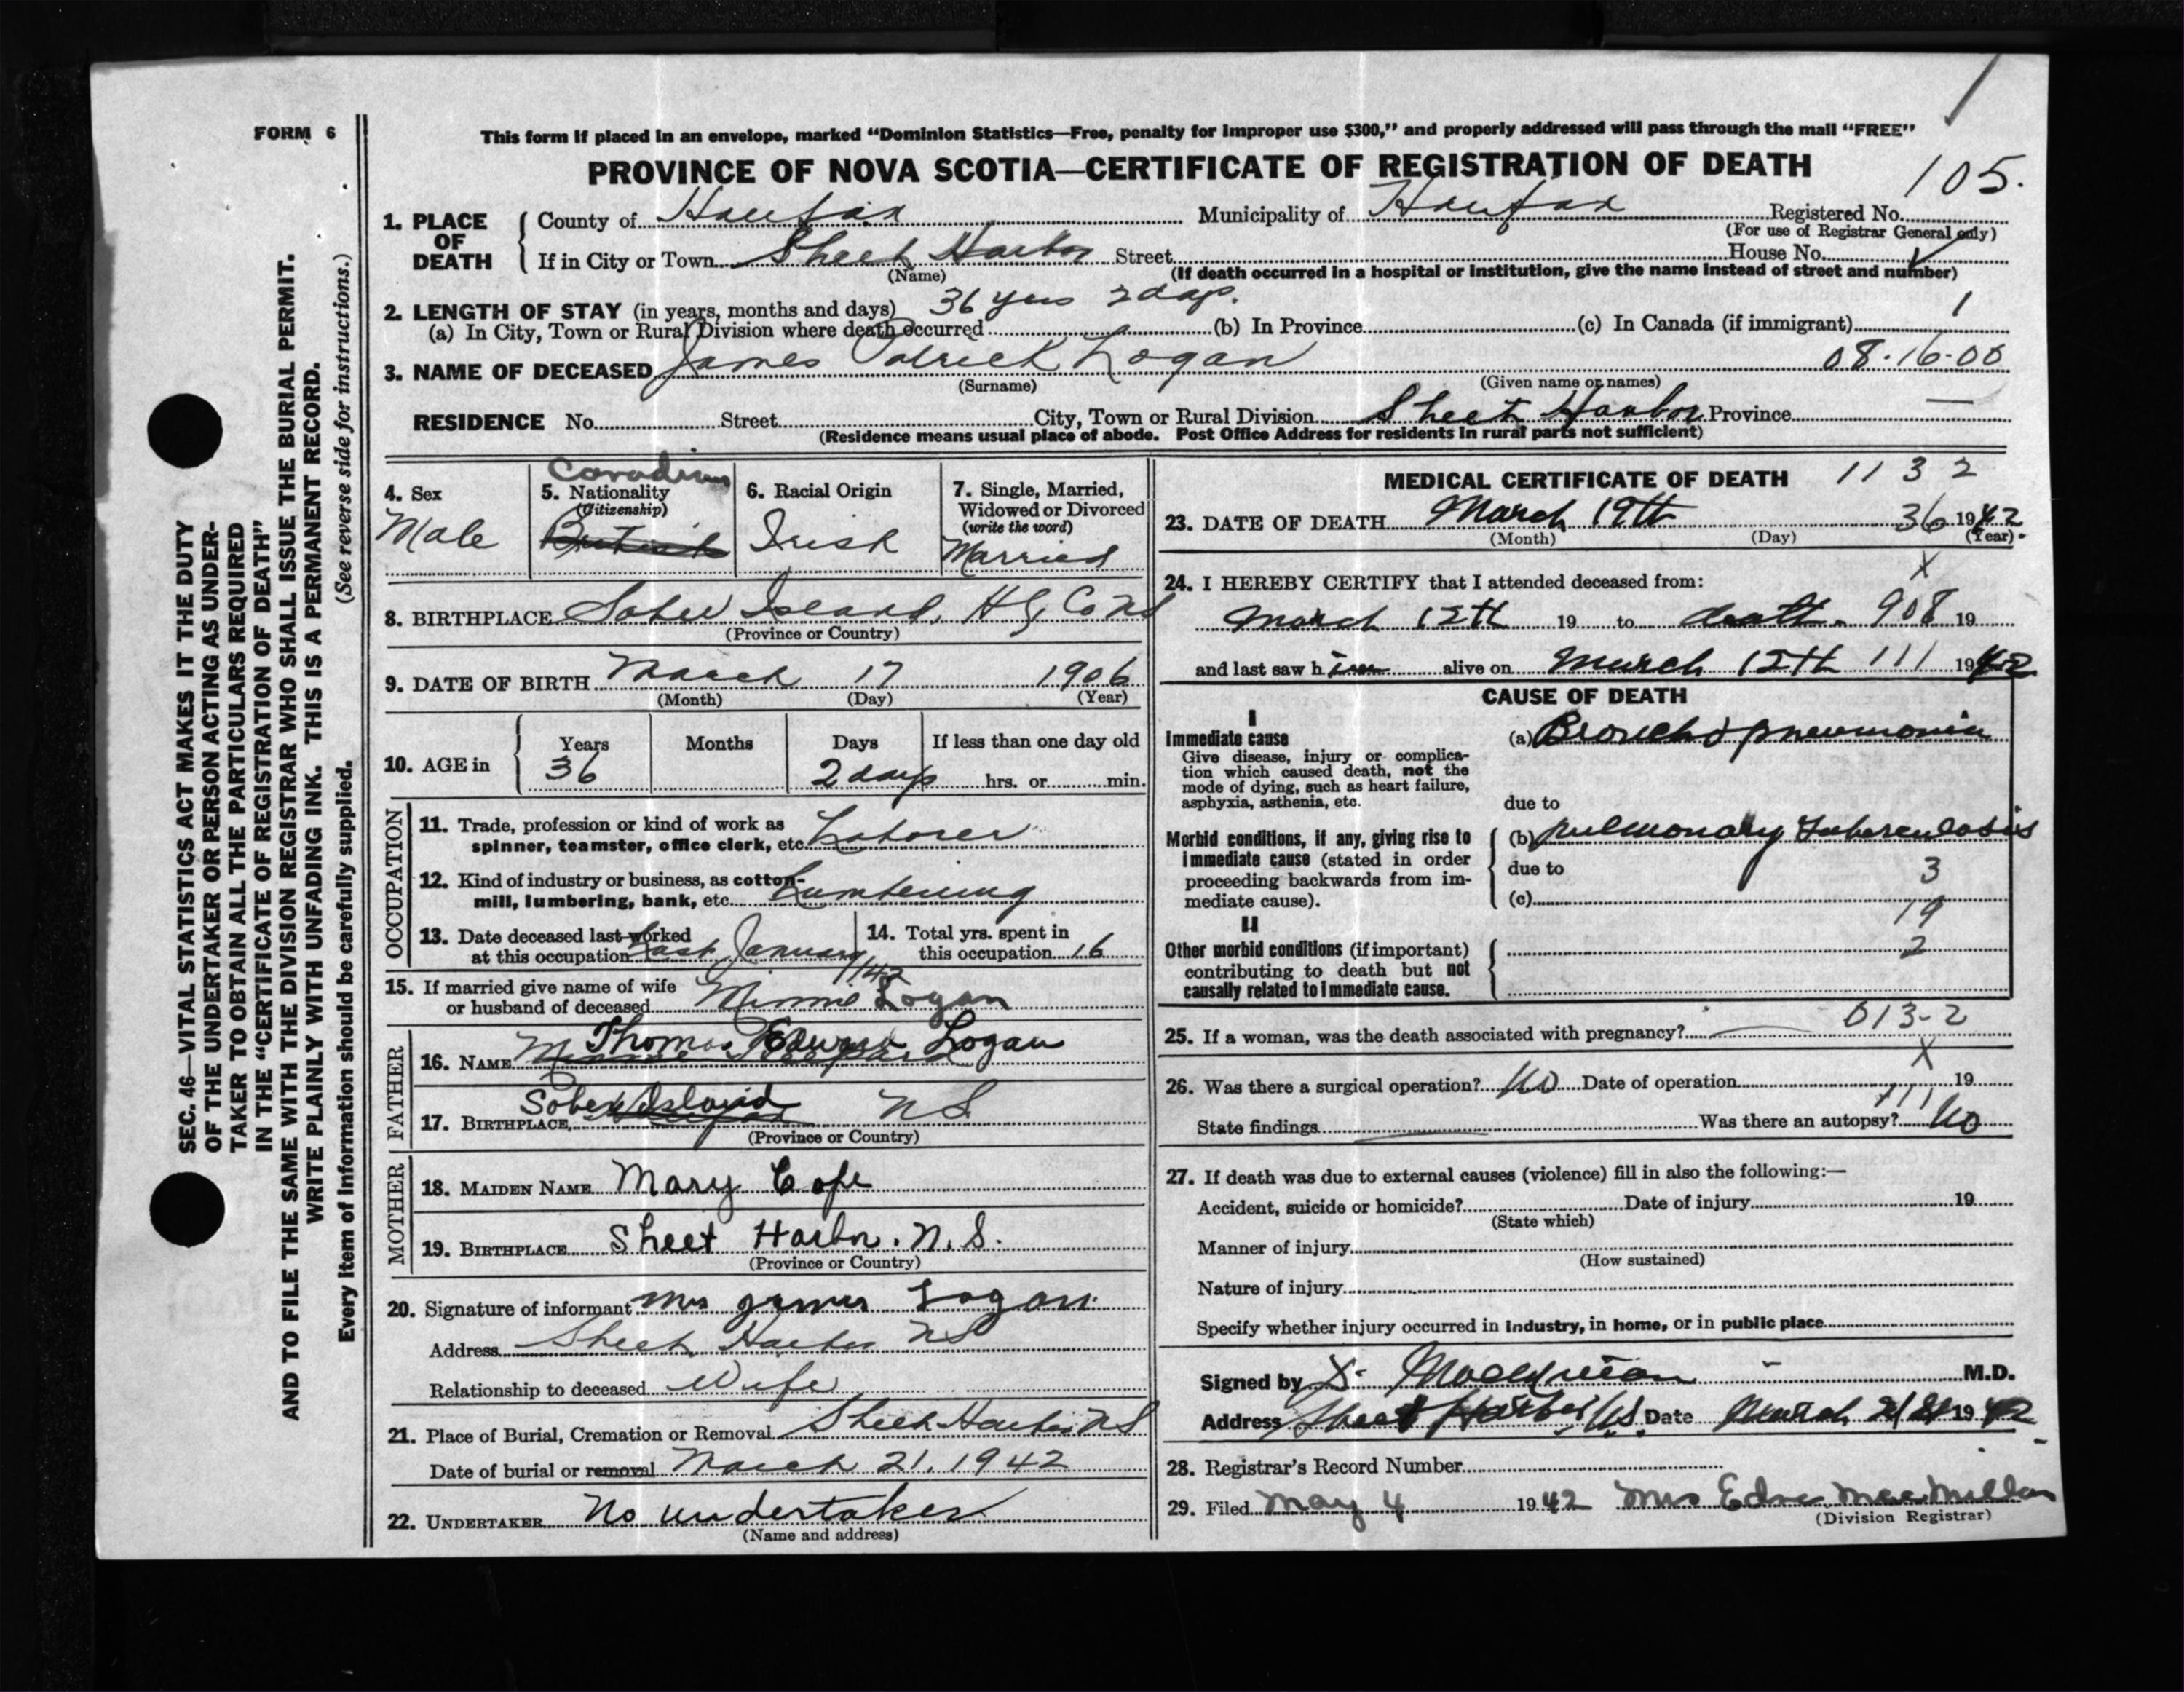 FORM 6
This form if placed in an envelope, marked “Dominion Statistics—Free, penalty for improper use $300,” and properly addressed will pass through the mail “FREE”
PROVINCE OF NOVA SCOTIA—CERTIFICATE OF REGISTRATION OF DEATH
105.
1. PLACE OF DEATH
County of Halifax Municipality of Halifax Registered No.
(For use of Registrar General only)
If in City or Town Sheet Harbor Street House No.
(Name) (If death occurred in a hospital or institution, give the name instead of street and number)
2. LENGTH OF STAY (in years, months and days) 36 yrs 2 days.
(a) In City, Town or Rural Division where death occurred (b) In Province (c) In Canada (if immigrant) 1
3. NAME OF DECEASED James Patrick Logan 08-16-00
(Surname) (Given name or names)
RESIDENCE No. Street City, Town or Rural Division Sheet Harbor Province
(Residence means usual place of abode. Post Office Address for residents in rural parts not sufficient)
4. Sex
Male
Canadian
5. Nationality
(Citizenship)
British
6. Racial Origin
Irish
7. Single, Married, Widowed or Divorced
(write the word)
Married
8. BIRTHPLACE Sober Island, Hfx Co NS
(Province or Country)
9. DATE OF BIRTH March 17 1906
(Month) (Day) (Year)
10. AGE in
Years Months Days If less than one day old
36 2 days hrs. or min.
OCCUPATION
11. Trade, profession or kind of work as
spinner, teamster, office clerk, etc. Laborer
12. Kind of industry or business, as cotton-
mill, lumbering, bank, etc. Lumbering
13. Date deceased last worked
at this occupation Last January 1/42
14. Total yrs. spent in
this occupation 16
15. If married give name of wife
or husband of deceased Minnie Logan
FATHER
16. NAME Thomas Edward Logan
17. BIRTHPLACE Sober Island NS
(Province or Country)
MOTHER
18. MAIDEN NAME Mary Cope
19. BIRTHPLACE Sheet Harbor. N.S.
(Province or Country)
20. Signature of informant Mrs James Logan
Address Sheet Harbor NS
Relationship to deceased Wife
21. Place of Burial, Cremation or Removal Sheet Harbor NS
Date of burial or removal March 21, 1942
22. UNDERTAKER No undertaker
(Name and address)
MEDICAL CERTIFICATE OF DEATH 1132
23. DATE OF DEATH March 19th 36 1942
(Month) (Day) (Year)
24. I HEREBY CERTIFY that I attended deceased from: X
March 12th 19 to death. 908 19
and last saw him alive on March 12th 111 1942
CAUSE OF DEATH
I
Immediate cause
Give disease, injury or complica-
tion which caused death, not the
mode of dying, such as heart failure,
asphyxia, asthenia, etc.
(a) Broncho pneumonia
due to
Morbid conditions, if any, giving rise to
immediate cause (stated in order
proceeding backwards from im-
mediate cause).
(b) pulmonary Tuberculosis
due to 3
(c) 19
II
Other morbid conditions (if important)
contributing to death but not
causally related to immediate cause.
2
25. If a woman, was the death associated with pregnancy? 013-2
X
26. Was there a surgical operation? No Date of operation 19
111
State findings Was there an autopsy? No
27. If death was due to external causes (violence) fill in also the following:—
Accident, suicide or homicide? Date of injury 19
(State which)
Manner of injury
(How sustained)
Nature of injury
Specify whether injury occurred in industry, in home, or in public place
Signed by M.D.
Address Sheet Harbor NS. Date March 1942
28. Registrar’s Record Number
29. Filed May 4 1942 Mrs Edna MacMillan
(Division Registrar)
SEC. 46—VITAL STATISTICS ACT MAKES IT THE DUTY
OF THE UNDERTAKER OR PERSON ACTING AS UNDER-
TAKER TO OBTAIN ALL THE PARTICULARS REQUIRED
IN THE “CERTIFICATE OF REGISTRATION OF DEATH”
AND TO FILE THE SAME WITH THE DIVISION REGISTRAR WHO SHALL ISSUE THE BURIAL PERMIT.
WRITE PLAINLY WITH UNFADING INK. THIS IS A PERMANENT RECORD.
Every item of information should be carefully supplied. (See reverse side for instructions.)